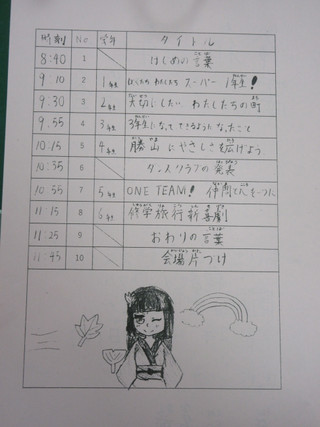 時刻 No 学年 タイトル
8:40 1 はじめの言葉
9:10 2 1年生 ぼくたち わたしたち スーパー 1年生!
9:30 3 2年生 大切にしたい わたしたちの町
9:55 4 3年生 3年生になって できるようになったこと
10:15 5 4年生 勝山にやさしさを広げよう
10:35 6 ダンスクラブの発表
10:55 7 5年生 ONE TEAM!
11:15 8 6年生 修学旅行新喜劇
11:25 9 おわりの言葉
11:45 10 会場片つけ